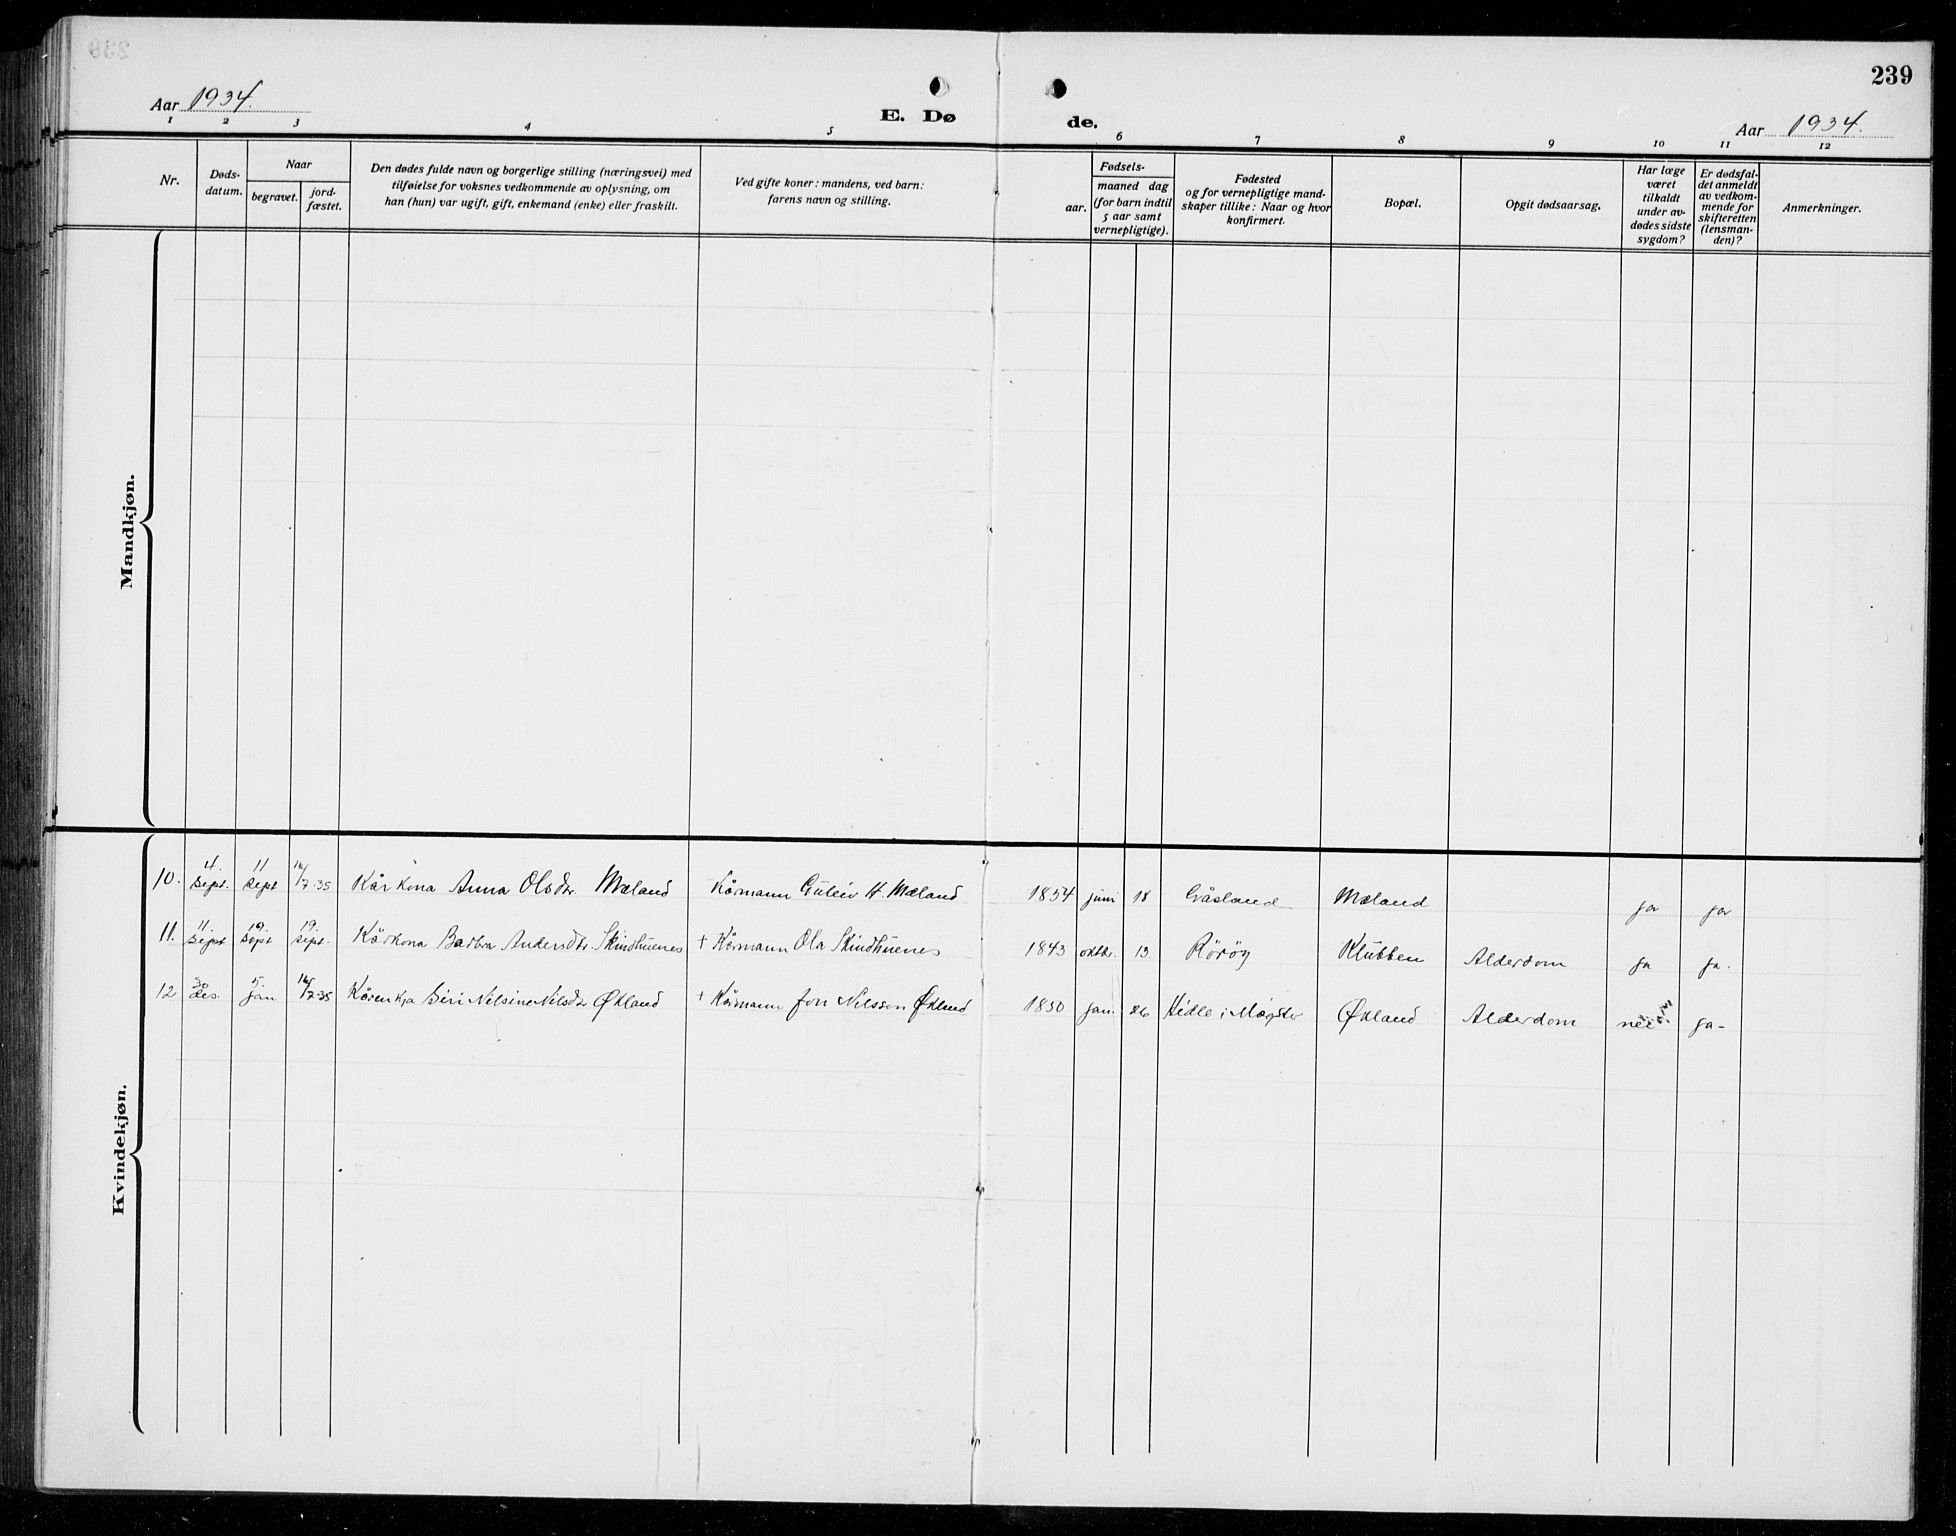 239
Aar 1934.
E. Dø
de.
Aar 1934.
1 2 3 4 5 6 7 8 9 10 11 12
Nr.
Døds-
datum.
Naar
begravet.
jord-
fæstet.
Den dødes fulde navn og borgerlige stilling (næringsvei) med
tilføielse for voksnes vedkommende av oplysning, om
han (hun) var ugift, gift, enkemand (enke) eller fraskilt.
Ved gifte koner: mandens, ved barn:
farens navn og stilling.
Fødsels-
aar.
maaned dag
(for barn indtil
5 aar samt
vernepligtige).
Fødested
og for vernepligtige mand-
skaper tillike: Naar og hvor
konfirmert.
Bopæl.
Opgit dødsaarsag.
Har læge
været
tilkaldt
under av-
dødes sidste
sygdom?
Er dødsfal-
det anmeldt
av vedkom-
mende for
skifteretten
(lensman-
den)?
Anmerkninger.
Mandkjøn.
Kvindekjøn.
10. 4. Sept. 11 Sept 16/7-35 Kårkona Anna Olsdtr. Mæland Kårmann Guleiv H. Mæland 1854 juni 18 Gåsland Mæland ja ja
11. 11 Sept 19. Sept 19. Sept. Kårkona Barbra Andersdtr. Skindhuenes + Kårmann Ola Skindhuenes 1843 oktbr. 13. Rørøy Klubben Alderdom ja ja.
12 30 des. 5. jan 16/7-35 Kårenkja Siri Nilsine Nilsdtr Økland + Kårmann Jon Nilsson Økland 1850 jan. 26 Hidle i Møgster Økland Alderdom nei ja-